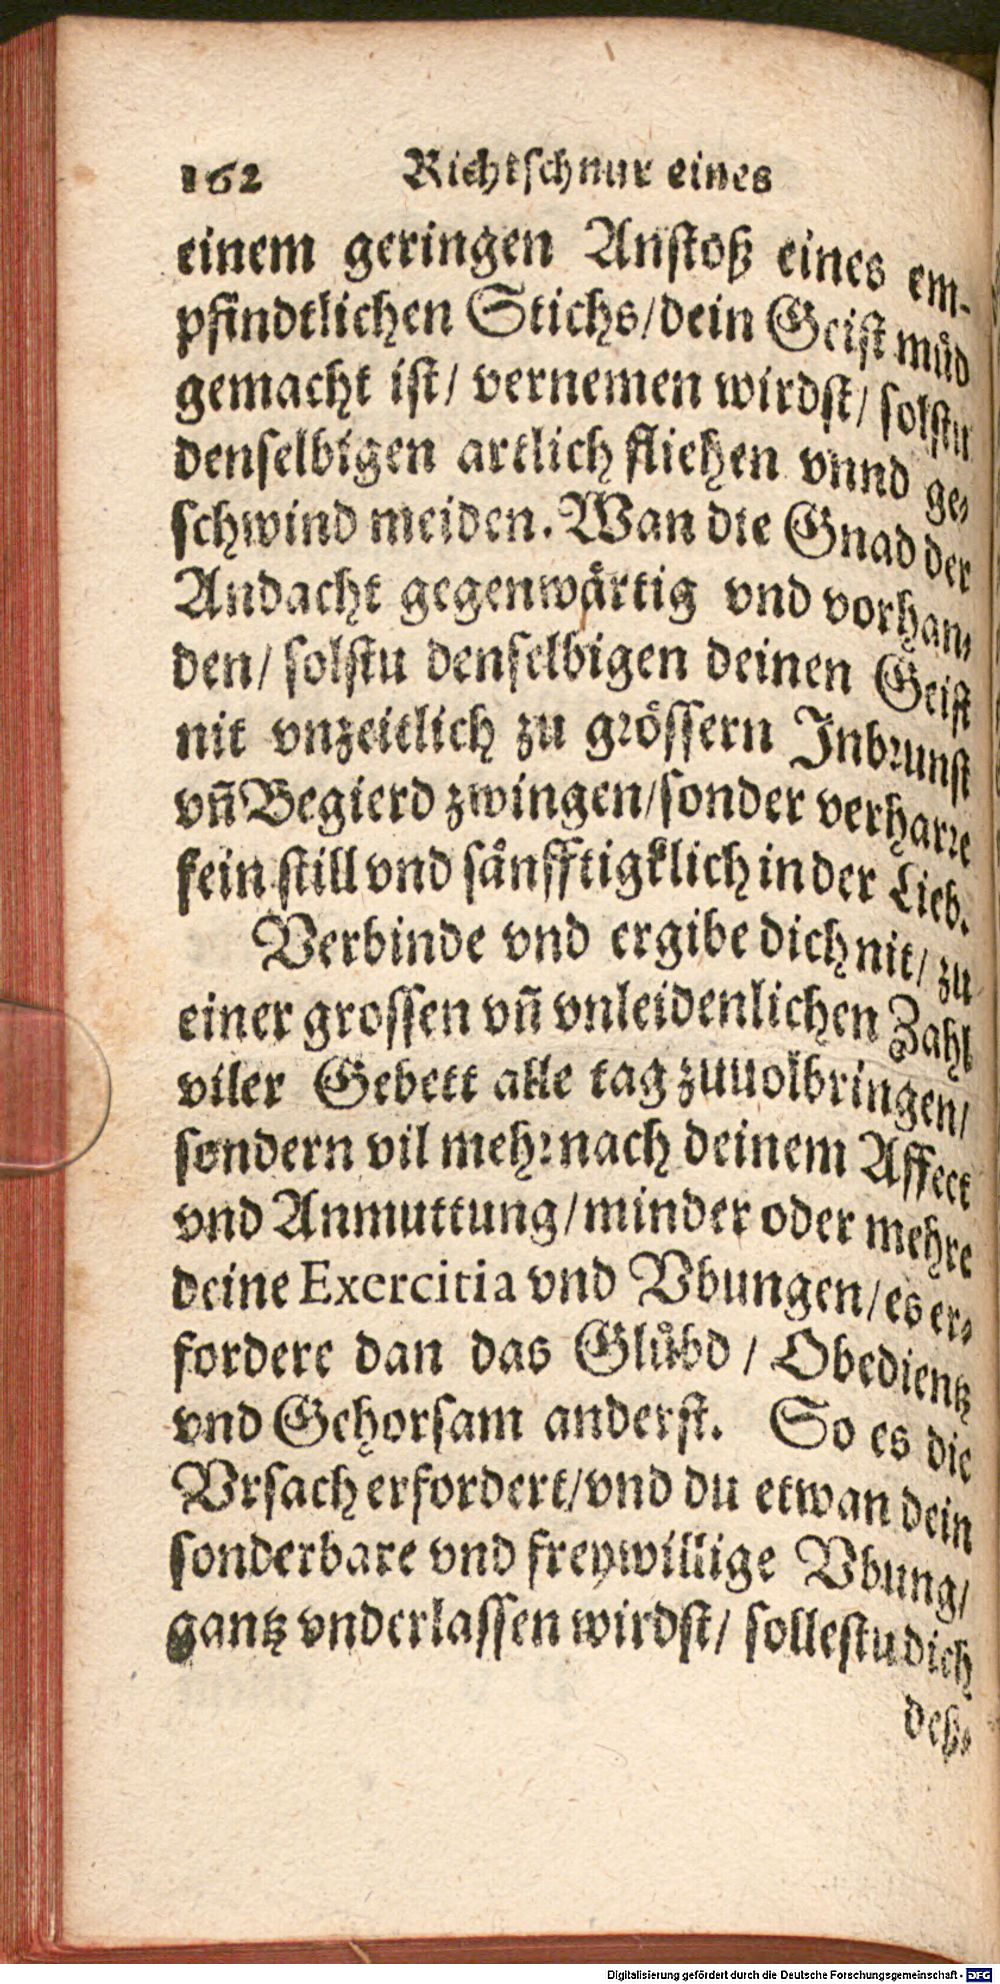 162 Richtschnur eines
einem geringen Anstoß eines em-
pfindtlichen Stichs/dein Geist müd
gemacht ist/ vernemen wirdst/ solstu
denselbigen artlich fliehen vnnd ge-
schwind meiden. Wan die Gnad der
Andacht gegenwärtig vnd vorhan-
den/ solstu denselbigen deinen Geist
nit vnzeitlich zu grössern Inbrunst
vn̄ Begierd zwingen/sonder verharre
fein still vnd sänfftigklich in der Lieb.
Verbinde vnd ergibe dich nit/ zu
einer grossen vn̄ vnleidenlichen Zahl
viler Gebett alle tag zuuolbringen/
sondern vil mehr nach deinem Affect
vnd Anmuttung/minder oder mehre
deine Exercitia vnd Vbungen/es er-
fordere dan das Glübd / Obedientz
vnd Gehorsam anderst. So es die
Vrsach erfordert/vnd du etwan dein
sonderbare vnd freywillige Vbung/
gantz vnderlassen wirdst/ sollestu dich
deß-
Digitalisierung gefördert durch die Deutsche Forschungsgemeinschaft - DFG